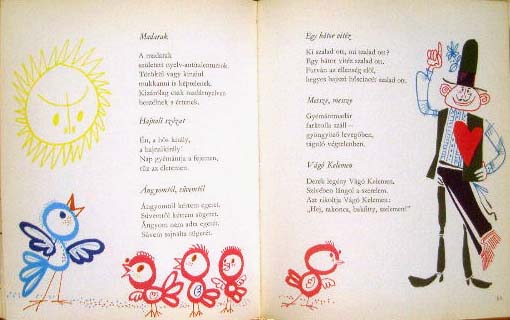 Madarak
A madarak
született nyelv-antitalentumok.
Törökül vagy kínaiul
mukkanni is képtelenek.
Kizárólag csak madárnyelven
beszélnek s értenek.
Hajnali szózat
Én, a hős király,
a hajnalkirály!
Nap gyémántja a fejemen,
tűz az életemen.
Ángyomtól, süvemtől
Ángyomtól kértem egeret.
Süvemtől kértem sügeret.
Ángyom nem adta egerét.
Süvem sajnálta sügerét.
Egy bátor vitéz
Ki szalad ott, mi szalad ott?
Egy bátor vitéz szalad ott.
Furván az ellenség elől,
hegyes bajszú hőscincér szalad ott.
Messze, messze
Gyémántmadár
farktolla száll –
gyöngyöző levegőben,
táguló végtelenben.
Vágó Kelemen
Derék legény Vágó Kelemen.
Szívében lángol a szerelem.
Azt rikoltja Vágó Kelemen:
„Hej, rakonca, bakfitty, szelemen!"